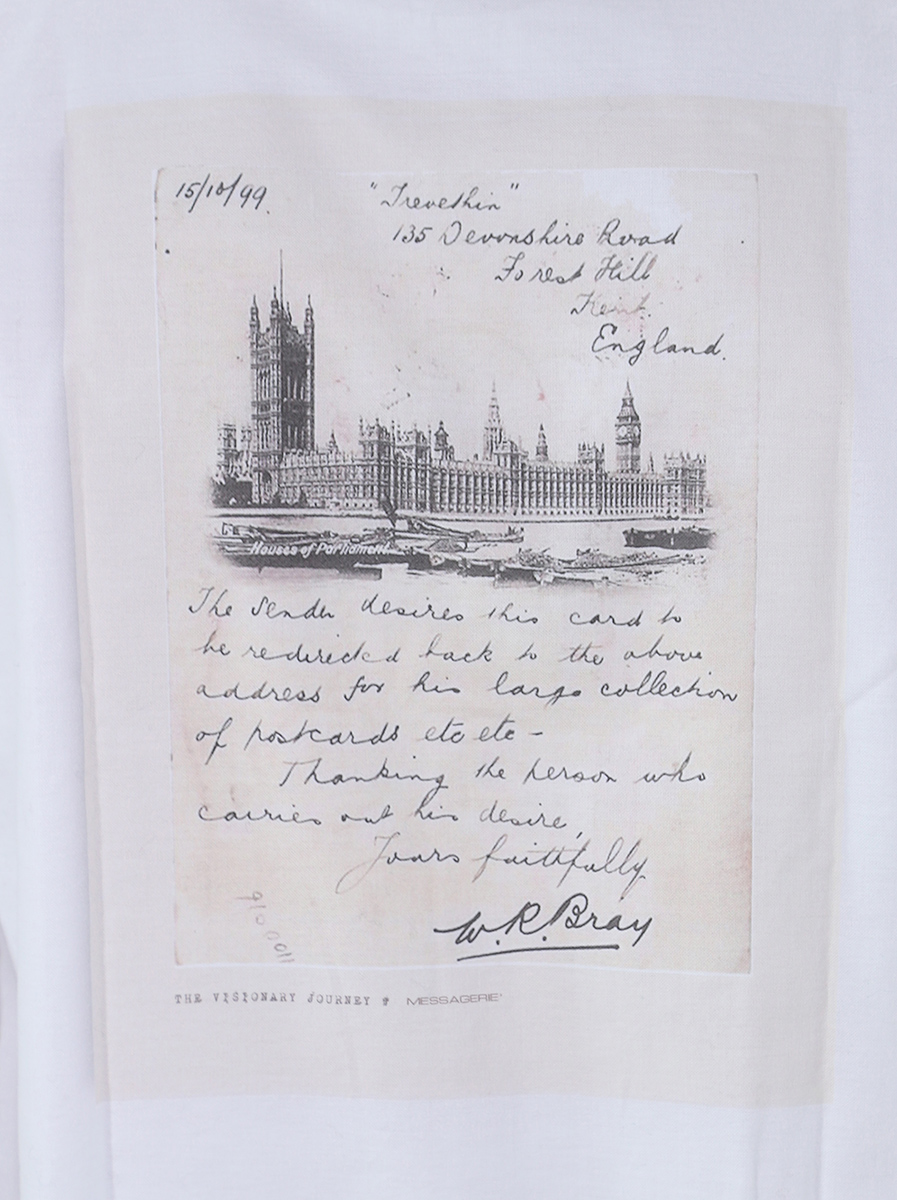 15/10/99
"Trevethin"
135 Devonshire Road
Forest Hill
Kent.
England.
Houses of Parliament
The Sender desires this card to
be redirected back to the above
address for his large collection
of postcards etc etc -
Thanking the person who
carries out his desire,
Yours faithfully
W.R.Bray
THE VISIONARY JOURNEY
MESSAGERIE'